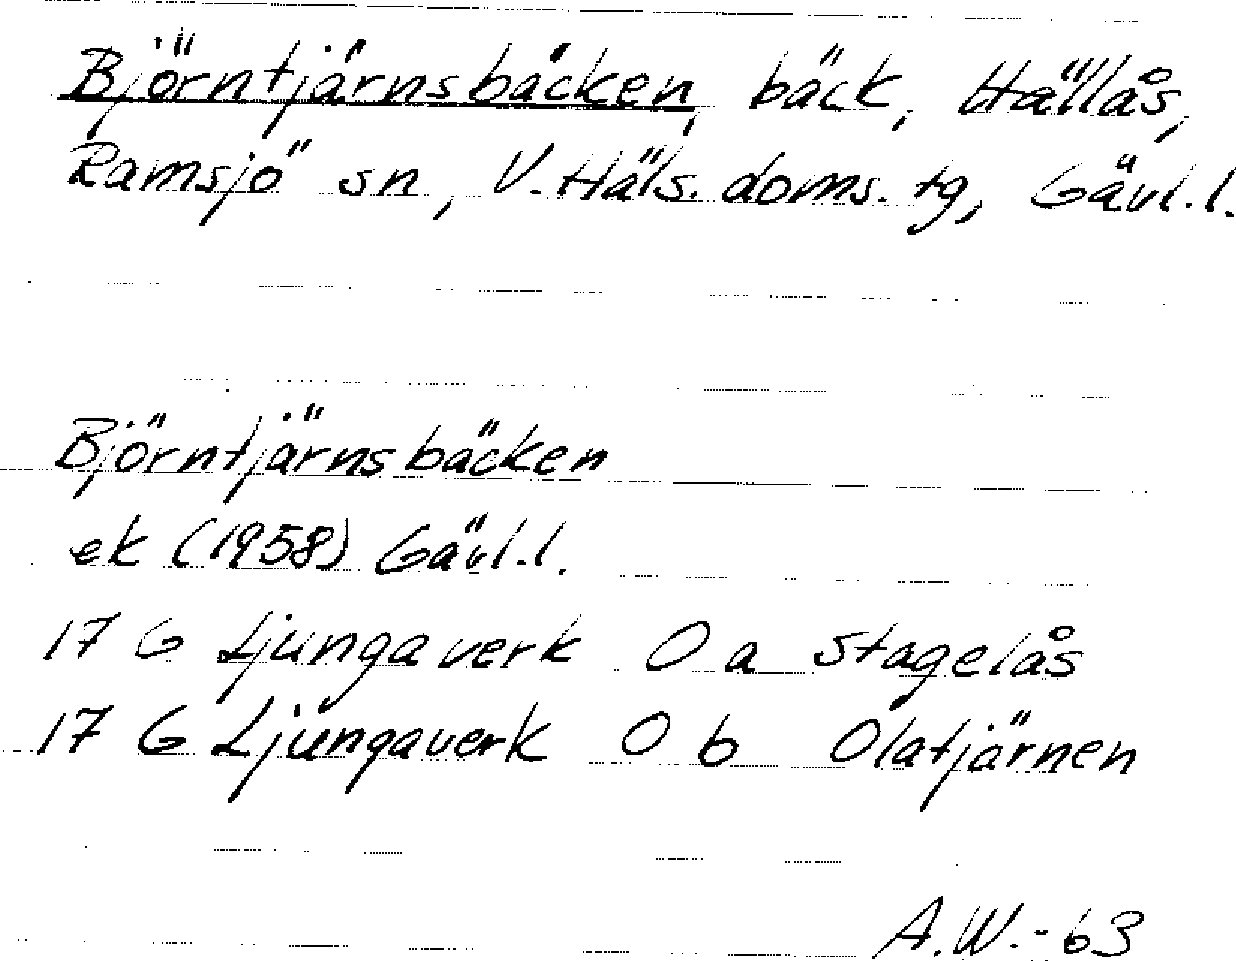 Björntjärnsbäcken, bäck, Hällås,
Ramsjö sn, V. Häls. doms. tg, Gävl.l.
Björntjärnsbäcken
ek (1958) Gävl.l.
17 G Ljungaverk 0 a Stagelås
17 G Ljungaverk 0 b Olatjärnen
A.W.-63